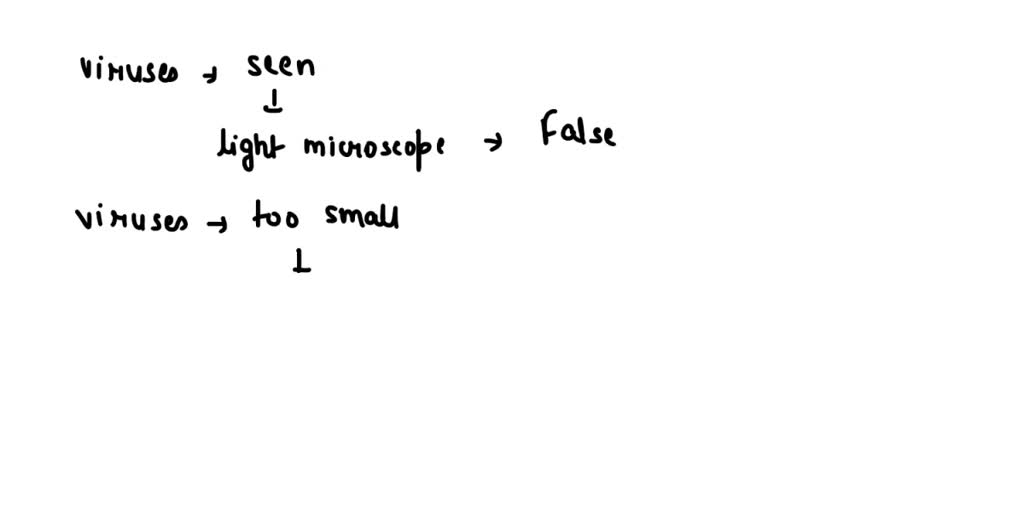 viruses → seen
↓
light microscope → False
viruses → too small
↓